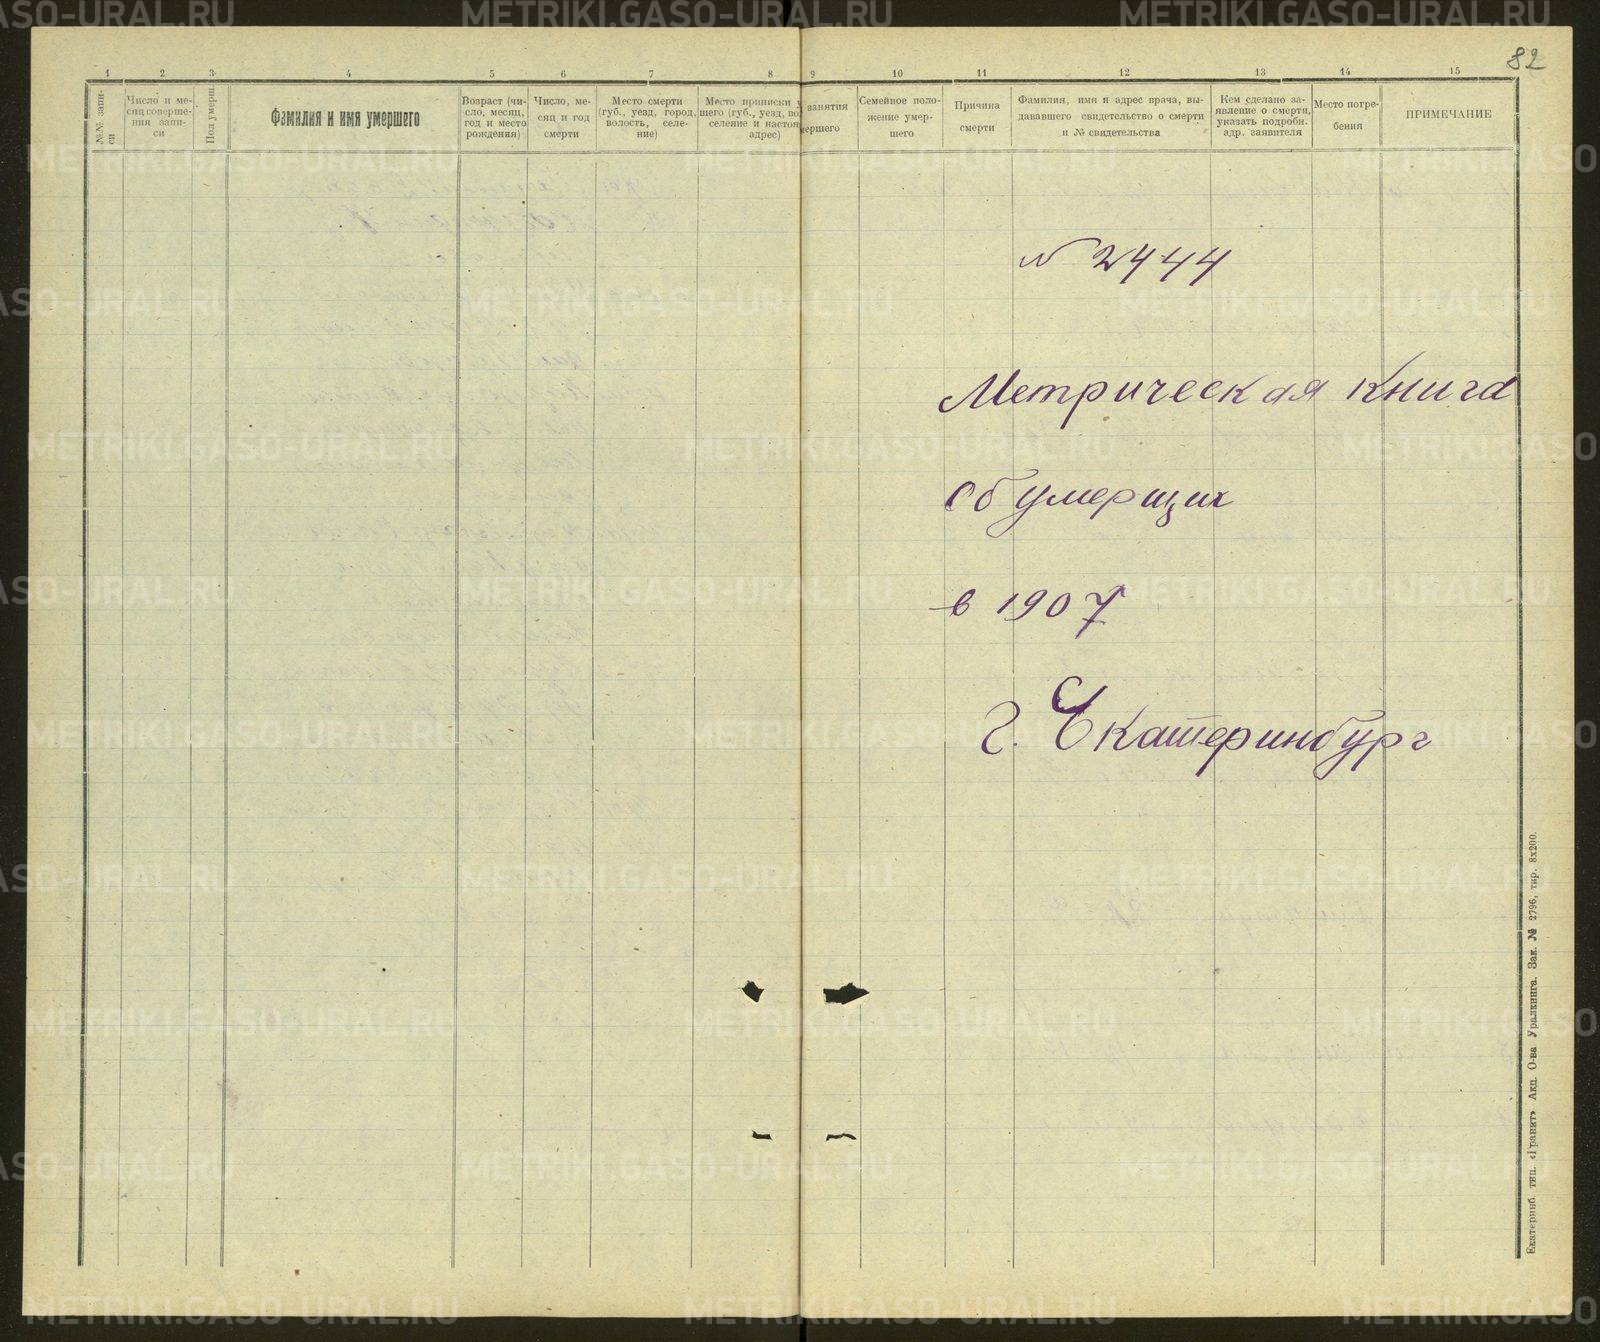 82
1 2 3 4 5 6 7 8 9 10 11 12 13 14 15
№№ записи
Число и месяц совершения записи
Пол умерш.
Фамилия и имя умершего
Возраст (число, месяц, год и место рождения)
Число, месяц и год смерти
Место смерти (губ., уезд, город, волость, селение)
Место приписки у
шего (губ., уезд, во
селение и настоя
адрес)
занятия
мершего
Семейное положение умершего
Причина смерти
Фамилия, имя и адрес врача, выдававшего свидетельство о смерти и № свидетельства
Кем сделано заявление о смерти, указать подробн. адр. заявителя
Место погребения
ПРИМЕЧАНИЕ
№ 2444
Метрическая книга
об умерщих
в 1907
г. Екатеринбург
Екатеринб. тип. «Гранит» Акц. О-ва Уралкнига. Зак. № 2796, тир. 8х200.
METRIKI.GASO-URAL.RU